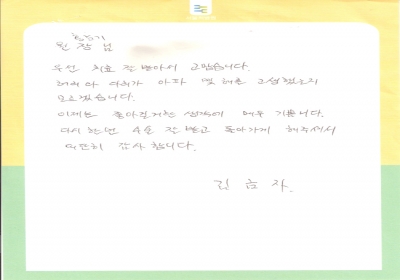 원장님
우선 치료 잘 받아서 고맙습니다.
허리와 다리가 아파 몇 해를 고생했는지
모르겠습니다.
이제는 좋아질거란 생각에 매우 기쁩니다.
다시 한번 수술 잘 받고 돌아가게 해주셔서
대단히 감사합니다.
김금자.